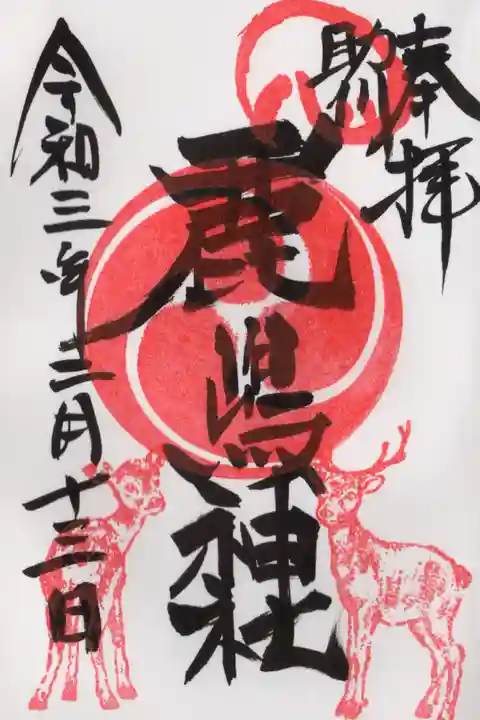 奉拝
助川
鹿島神社
令和三年二月十三日